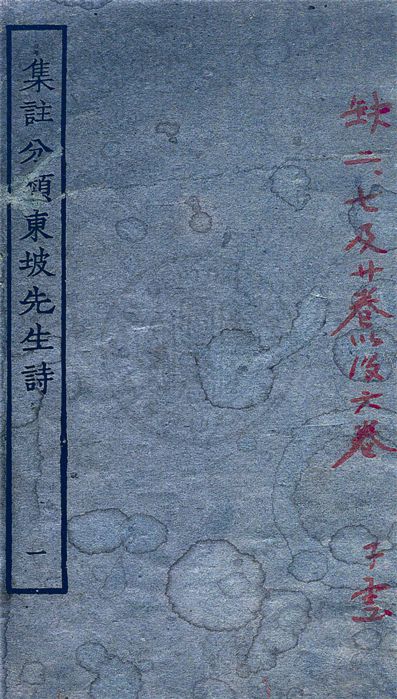 缺二、七及廿卷以後六卷
子雲
集註分類東坡先生詩
一